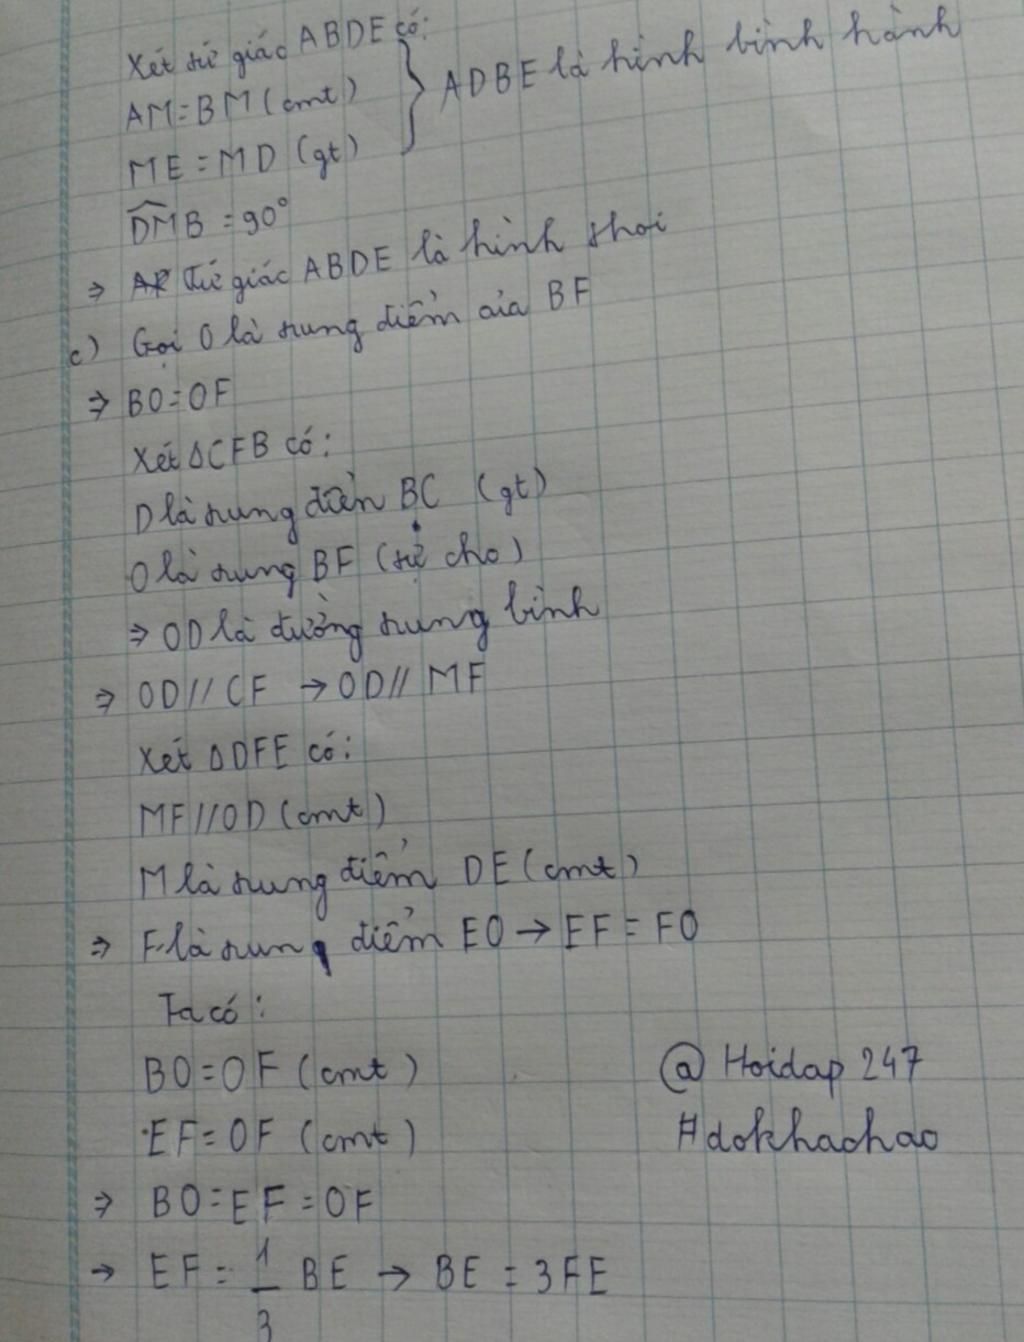 Xét tứ giác ABDE có:
AM=BM (cmt) } ADBE là hình bình hành
ME = MD (gt)
DMB = 90°
⇒ Tứ giác ABDE là hình thoi
c) Gọi O là trung điểm của BF
⇒ BO=OF
Xét ΔCFB có:
D là trung điểm BC (gt)
O là trung BF (tự cho)
⇒ OD là đường trung bình
⇒ OD // CF → OD // MF
Xét ΔDFE có:
MF//OD (cmt)
M là trung điểm DE (cmt)
⇒ F là trung điểm EO → EF = FO
Ta có:
BO=OF (cmt)
EF=OF (cmt)
⇒ BO=EF=OF
→ EF = 1/3 BE → BE = 3FE
@ Hoidap 247
#dokhachao